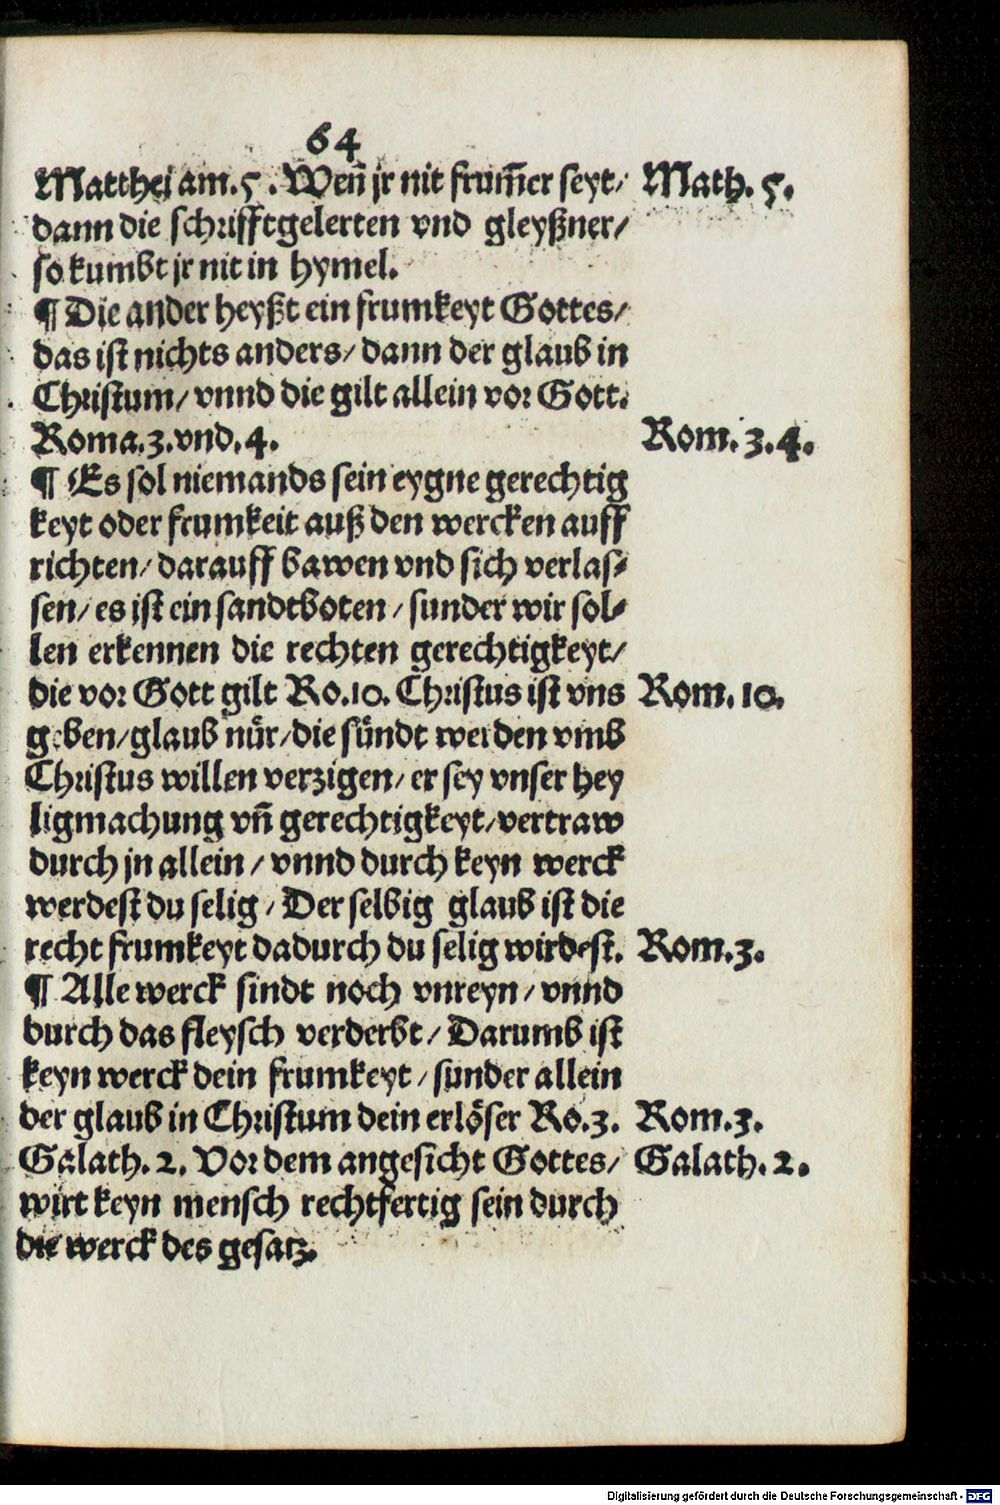 64
Matthei am. 5. Weñ jr nit frum̃er seyt/ Math. 5.
dann die schrifftgelerten vnd gleyßner/
so kumbt jr nit in hymel.
¶ Die ander heyßt ein frumkeyt Gottes/
das ist nichts anders/ dann der glaub in
Christum/ vnnd die gilt allein vor Gott.
Roma. 3. vnd. 4. Rom. 3. 4.
¶ Es sol niemands sein eygne gerechtig
keyt oder frumkeit auß den wercken auff
richten/ darauff bawen vnd sich verlas⸗
sen/ es ist ein sandtboten/ sunder wir sol⸗
len erkennen die rechten gerechtigkeyt/
die vor Gott gilt Ro. 10. Christus ist vns Rom. 10.
geben/ glaub nůr/ die sündt werden vmb
Christus willen verzigen/ er sey vnser hey
ligmachung vñ gerechtigkeyt/ vertraw
durch jn allein/ vnnd durch keyn werck
werdest du selig/ Der selbig glaub ist die
recht frumkeyt dadurch du selig wirdest. Rom. 3.
¶ Alle werck sindt noch vnreyn/ vnnd
durch das fleysch verderbt/ Darumb ist
keyn werck dein frumkeyt/ sunder allein
der glaub in Christum dein erlöser Ro. 3. Rom. 3.
Galath. 2. Vor dem angesicht Gottes/ Galath. 2.
wirt keyn mensch rechtfertig sein durch
die werck des gesatz.
Digitalisierung gefördert durch die Deutsche Forschungsgemeinschaft - DFG